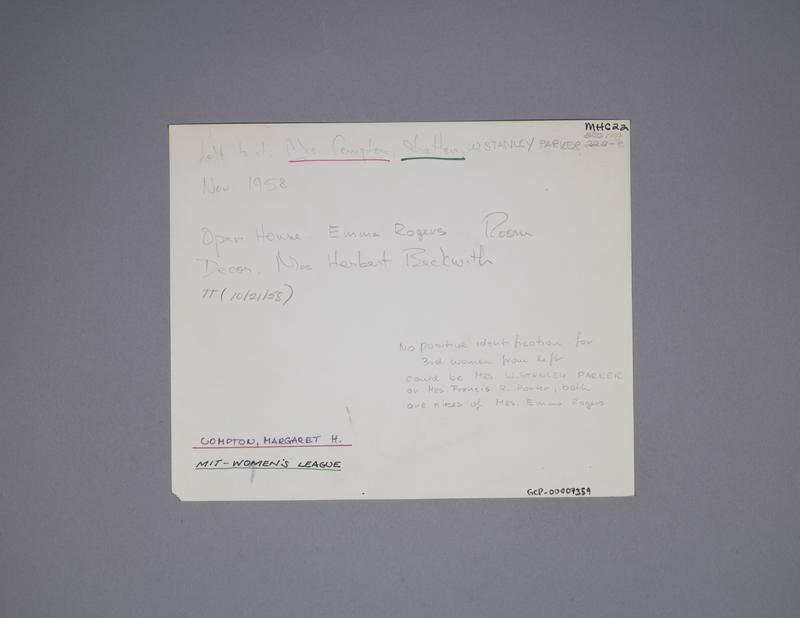 MHC22
left to r. Mrs. Compton, Stratton, W. STANLEY PARKER
Nov 1958
Open House Emma Rogers Room
Decor. Mrs Herbert Beckwith
TT (10/21/58)
No positive identification for
3rd women from left
could be MRS. W. STANLEY PARKER
or Mrs Francis R. Porter, both
are nieces of Mrs. Emma Rogers
COMPTON, MARGARET H.
MIT-WOMEN'S LEAGUE
GCP-00007359